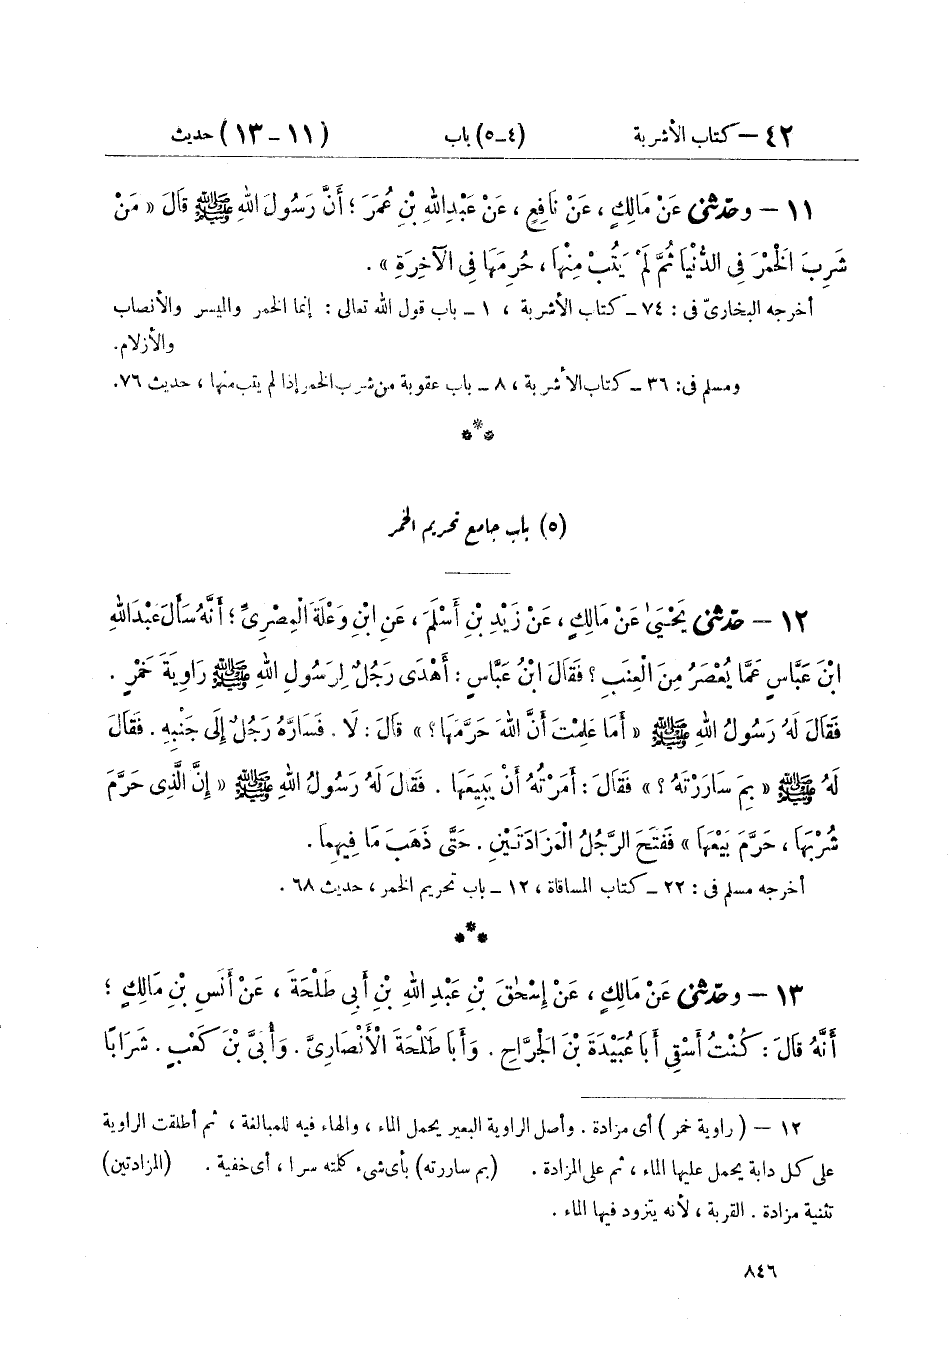 ٤٢ – كتاب الأشربة (٤-٥) باب (١١ - ١٣) حديث
١١ – وحَدَّثَنِي عَنْ مَالِكٍ، عَنْ نَافِعٍ، عَنْ عَبْدِ اللهِ بْنِ عُمَرَ؛ أَنَّ رَسُولَ اللهِ ﷺ قَالَ « مَنْ
شَرِبَ الْخَمْرَ فِي الدُّنْيَا ثُمَّ لَمْ يَتُبْ مِنْهَا، حُرِمَهَا فِي الْآخِرَةِ ».
أخرجه البخارىّ فى : ٧٤ – كتاب الأشربة ، ١ – باب قول الله تعالى : إنما الخمر والميسر والأنصاب
والأزلام.
ومسلم فى: ٣٦ – كتاب الأشربة ، ٨ – باب عقوبة من شرب الخمر إذا لم يتب منها ، حديث ٧٦.
***
(٥) باب جامع تحريم الخمر
١٢ – حَدَّثَنِي يَحْيَىٰ عَنْ مَالِكٍ، عَنْ زَيْدِ بْنِ أَسْلَمَ، عَنِ ابْنِ وَعْلَةَ الْمِصْرِىِّ؛ أَنَّهُ سَأَلَ عَبْدَ اللهِ
ابْنَ عَبَّاسٍ عَمَّا يُعْصَرُ مِنَ الْعِنَبِ؟ فَقَالَ ابْنُ عَبَّاسٍ : أَهْدَى رَجُلٌ لِرَسُولِ اللهِ ﷺ رَاوِيَةَ خَمْرٍ .
فَقَالَ لَهُ رَسُولُ اللهِ ﷺ « أَمَا عَلِمْتَ أَنَّ اللهَ حَرَّمَهَا؟ » قَالَ : لَا . فَسَارَّهُ رَجُلٌ إِلَى جَنْبِهِ . فَقَالَ
لَهُ ﷺ « بِمَ سَارَرْتَهُ ؟ » فَقَالَ : أَمَرْتُهُ أَنْ يَبِيعَهَا . فَقَالَ لَهُ رَسُولُ اللهِ ﷺ « إِنَّ الَّذِى حَرَّمَ
شُرْبَهَا ، حَرَّمَ بَيْعَهَا » فَفَتَحَ الرَّجُلُ الْمَزَادَتَيْنِ . حَتَّى ذَهَبَ مَا فِيهِمَا .
أخرجه مسلم فى : ٢٢ – كتاب المساقاة ، ١٢ – باب تحريم الخمر ، حديث ٦٨ .
***
١٣ – وحَدَّثَنِي عَنْ مَالِكٍ، عَنْ إِسْحٰقَ بْنِ عَبْدِ اللهِ بْنِ أَبِي طَلْحَةَ ، عَنْ أَنَسِ بْنِ مَالِكٍ ؛
أَنَّهُ قَالَ : كُنْتُ أَسْقِى أَبَا عُبَيْدَةَ بْنَ الْجَرَّاحِ . وَأَبَا طَلْحَةَ الْأَنْصَارِىَّ . وَأُبَىَّ بْنَ كَعْبٍ . شَرَابًا
١٢ – ( راوية خمر ) أى مزادة . وأصل الراوية البعير يحمل الماء ، والهاء فيه للمبالغة ، ثم أطلقت الراوية
على كل دابة يحمل عليها الماء ، ثم على المزادة . (بم ساررته) بأى شىء كلمته سرا ، أى خفية . (المزادتين)
تثنية مزادة . القربة ، لأنه يتزود فيها الماء .
٨٤٦